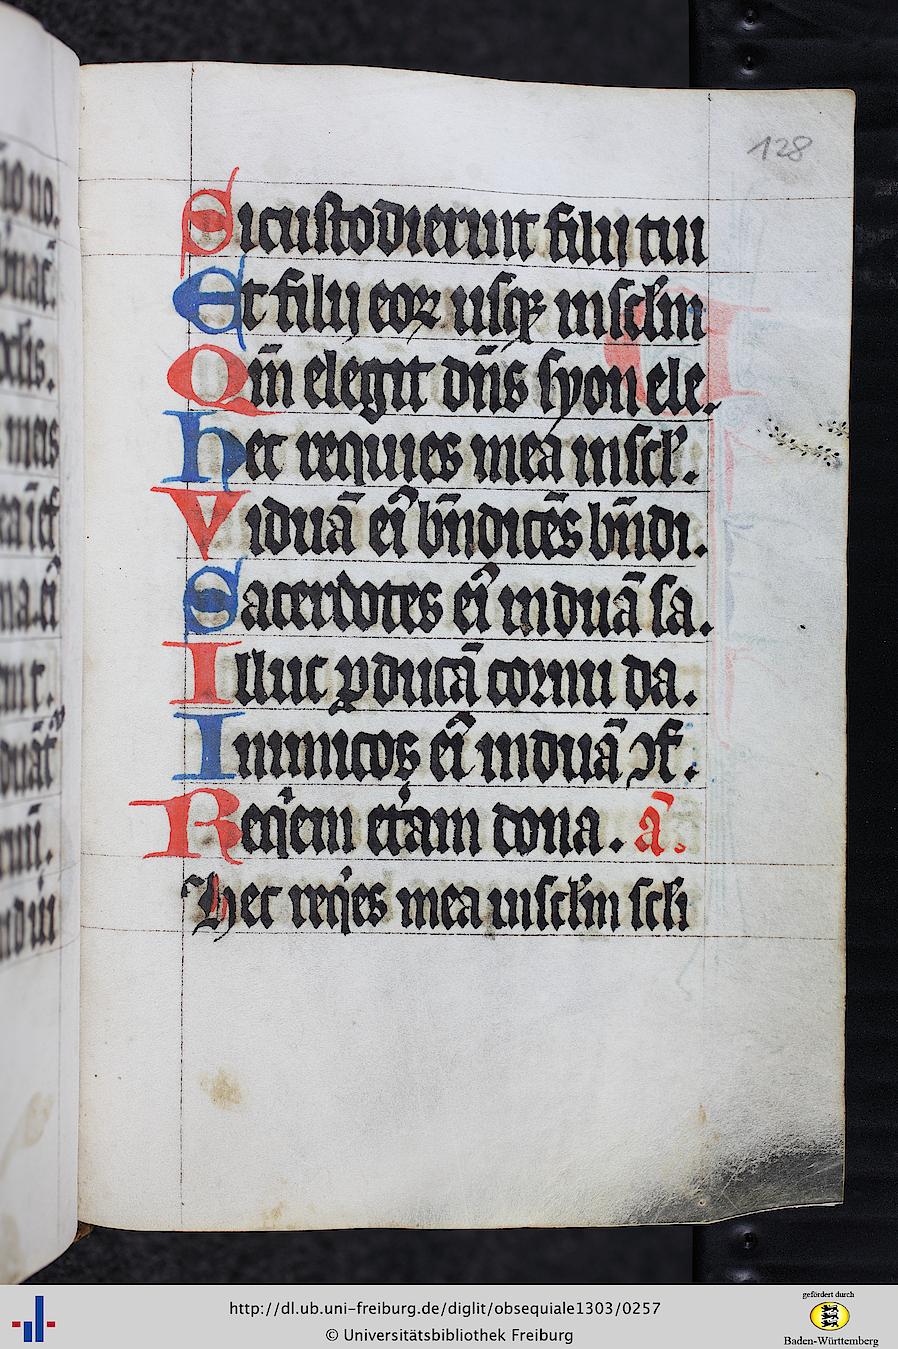 128
Si custodierunt filij tui
Et filij eoꝝ usqꝫ in sclm
Qm̄ elegit dn̄s syon ele.
hec requies mea in scl̄.
Viduā ei᷒ bn̄dicēs bn̄di.
Sacerdotes ei᷒ induā sa.
Illuc ꝓducā cornu da.
Inimicos ei᷒ induā ꝯf.
Reqͥem et̉nam dona. ā.
Hec reqͥes mea in sclm̄ scli
http://dl.ub.uni-freiburg.de/diglit/obsequiale1303/0257
© Universitätsbibliothek Freiburg
gefördert durch
Baden-Württemberg